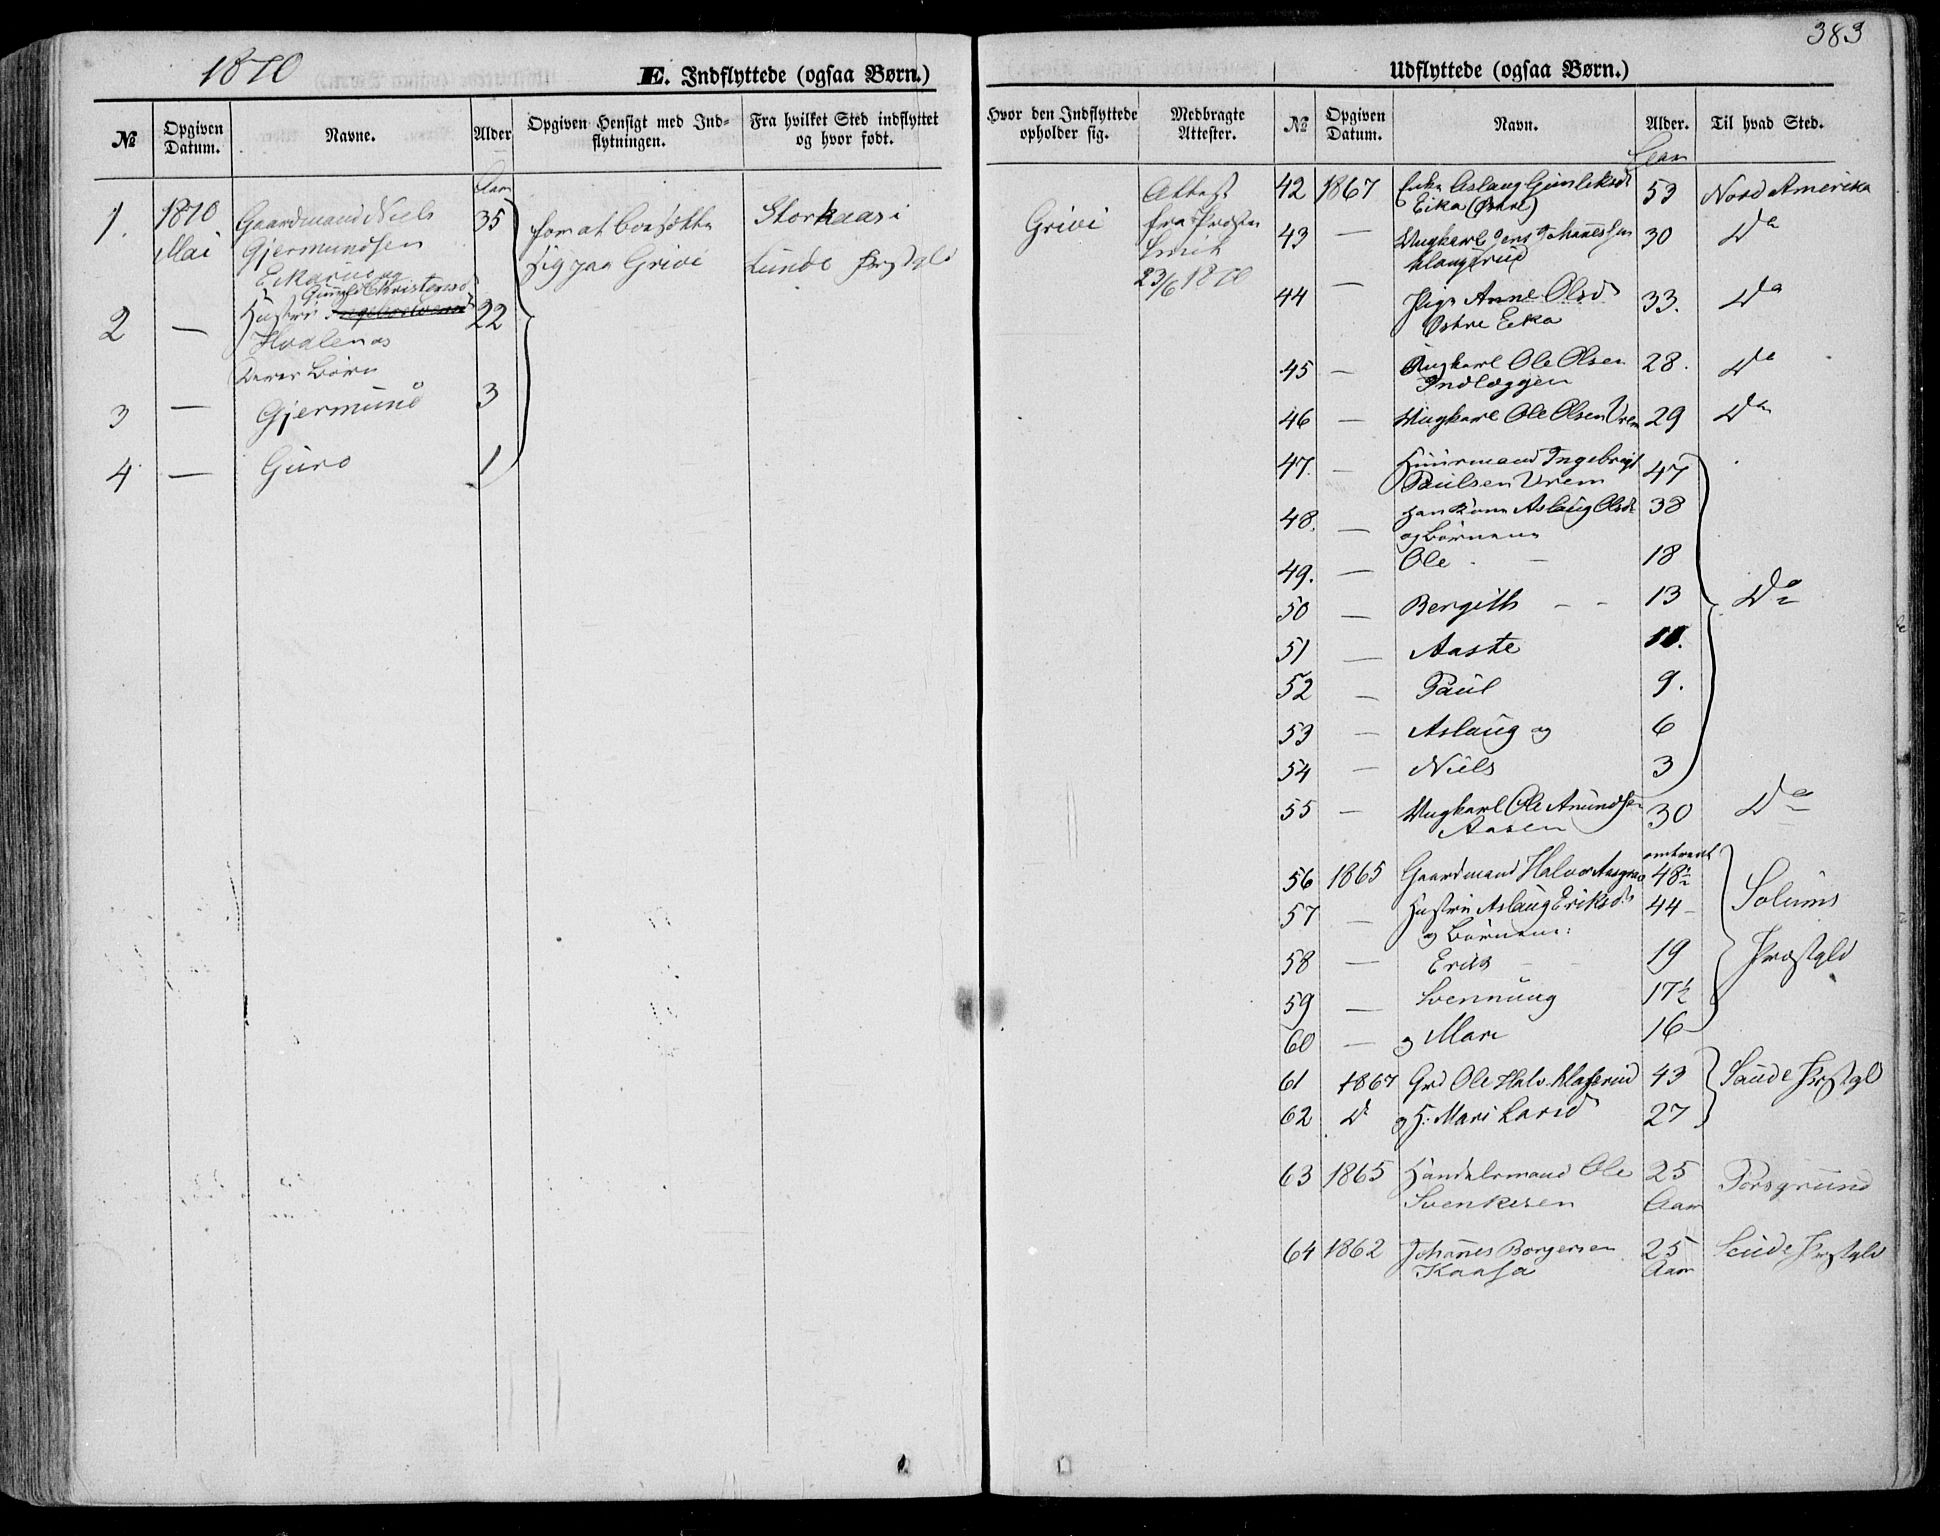 383
1870
E. Indflyttede (ogsaa Børn.)
Udflyttede (ogsaa Børn.)
№ Opgiven Datum. Navne. Alder Opgiven Hensigt med Indflytningen. Fra hvilket Sted indflyttet og hvor født.
Hvor den Indflyttede opholder sig. Medbragte Attester. № Opgiven Datum. Navn. Alder. Til hvad Sted.
Aar
1. 1870 Gaardmand Niels 35 Storkaas i
Mai Gjermundsen sig paa Grivi Lunde Prstgld
Gunhild Christensd
2 — Hustru 22
Deres Børn
3 — Gjermund 3
4 — Guro 1
Grivi
Attest
fra Præsten
23/6 1870
Aar
42 1867 Enke Aslaug Gunleiksd 53 Nord Amerika
Eika (Østre)
43 — Ungkarl Jens Johannessen 30 Do
44 — Pige Anne Olsd 33. Do
Østre Eika
45 — Ungkarl Ole Olsen 28. Do
Indlæggen
46 — Ungkarl Ole Olsen Vrem 29 Do
47. — Huusmand Ingebrigt 47
Paulsen Vrem
48. — Hans Kone Aslaug Olsd 38
og Børnene
49. — Ole - 18
50 — Bergith - - 13 Do
51 — Aaste 11.
52 — Paul 9.
53 — Aslaug og 6
54 — Niels 3
55 — Ungkarl Ole Amundsen 30 Do
Aasen
omtrent
56 1865 Gaardmand Halvor 48½ Solums
57 — Hustru Aslaug Eriksd 44 -
og Børnene:
58 — Erik - 19 Præstgld
59 — Svennung 17½
60 — og Mari 16
61 1867 Grd Ole Halv. 43 Saude Prstgld
62 Do og H. Mari Larsd 27
63 1865 Handelsmand Ole 25 Porsgrund
Svenkesen Aar
64 1862 Johannes Borgersen 25 Saude Prstgld
Kaasa Aar